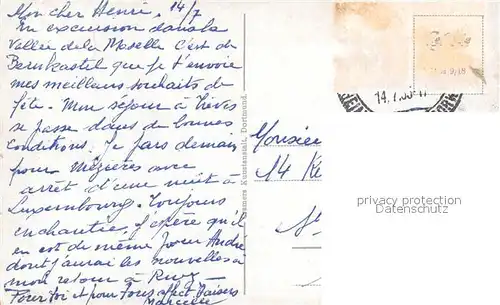 Mon cher Henri, 14/7
En excursion dans la
Vallée de la Moselle c'est de
Bernkastel que je t'envoie
mes meilleurs souhaits de
fête. Mon séjour à Trèves
se passe dans de bonnes
conditions. Je pars demain
pour Mézières avec
arrêt d'une nuit à
Luxembourg. Toujours
enchantée, j'espère qu'il
en est de même pour André
dont j'aurai les nouvelles à
mon retour à
Pour toi et pour tous affect. Baisers
Marcelle
Cramers Kunstanstalt, Dortmund
14.7.
Monsieu
14
privacy protection
Datenschutz